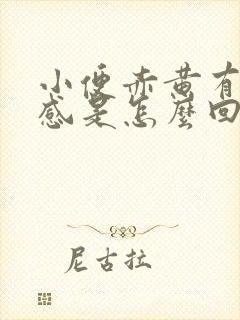 小便赤黄有
感是怎麼回
尼古拉